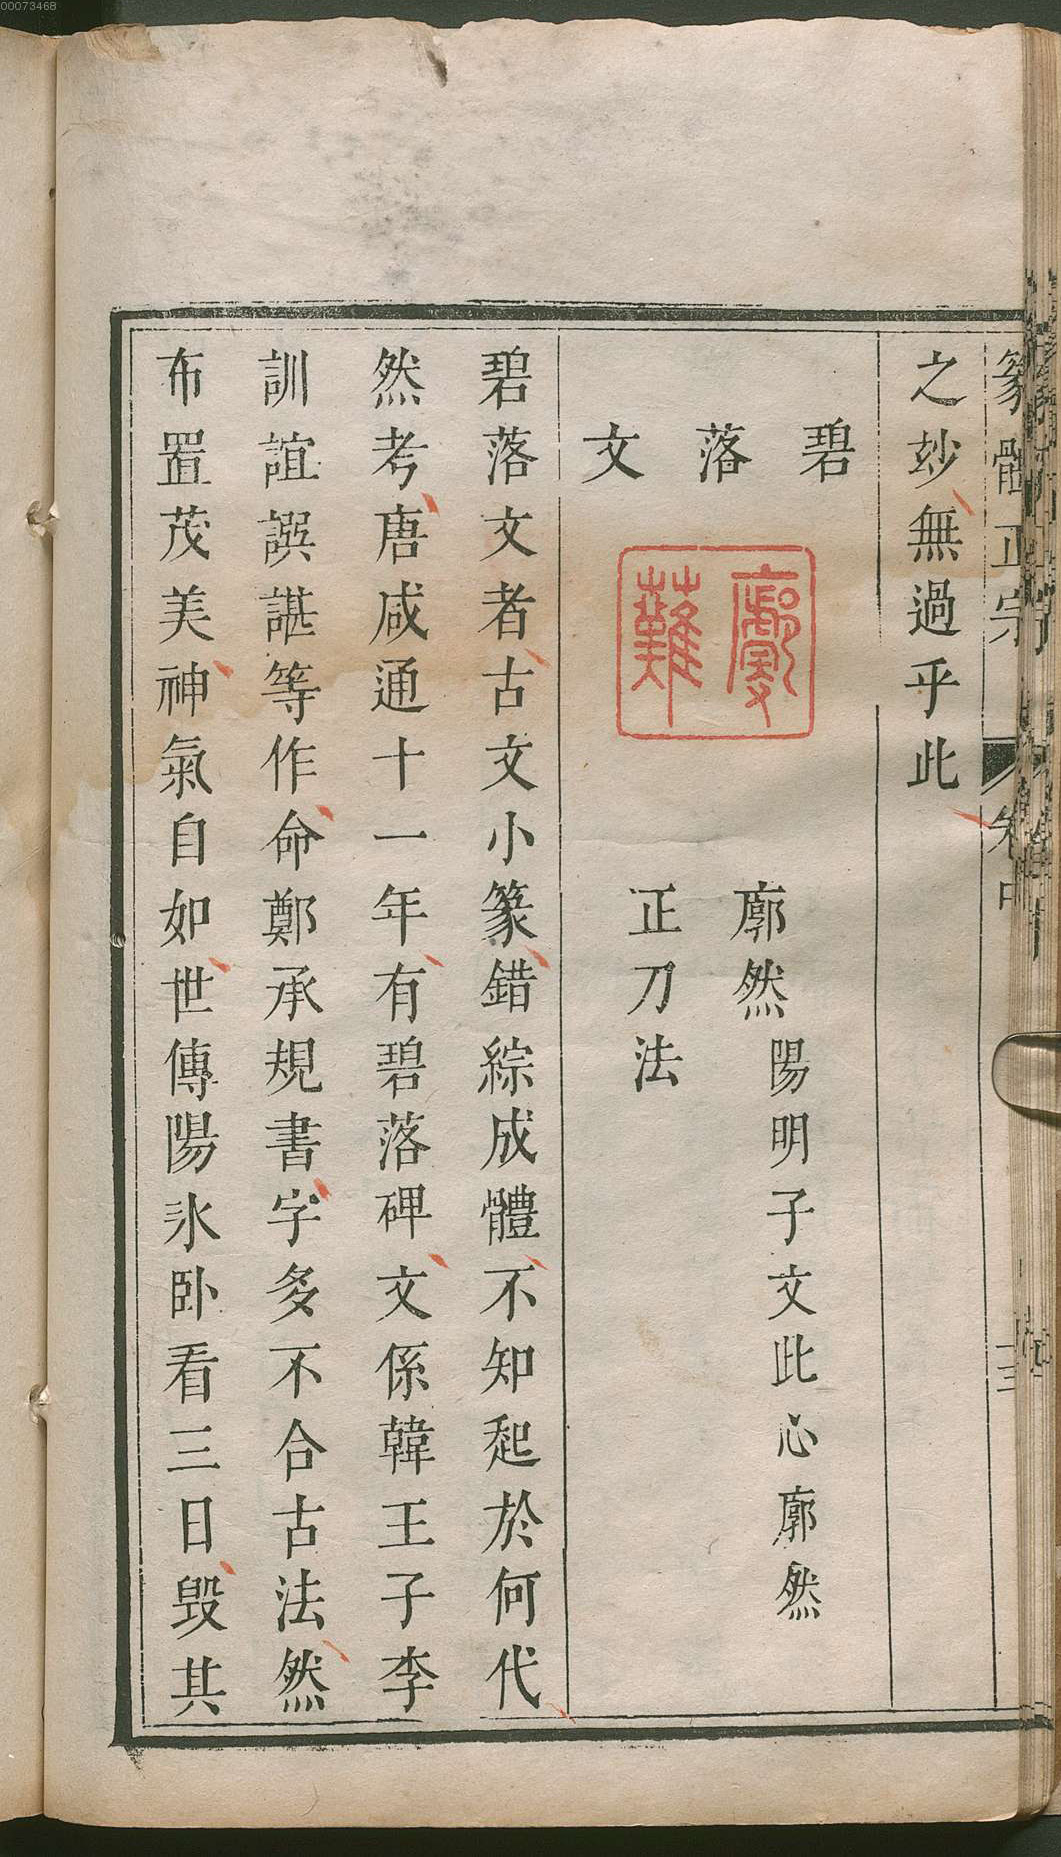 00073468
篆體正宗
卷中
之玅無過乎此
碧
落
文
廓然陽明子文此心廓然
正刀法
碧落文者古文小篆錯綜成體不知起於何代
然考唐咸通十一年有碧落碑文係韓王子李
訓誼譔諶等作命鄭承規書字多不合古法然
布置茂美神氣自如世傳陽氷卧看三日毀其